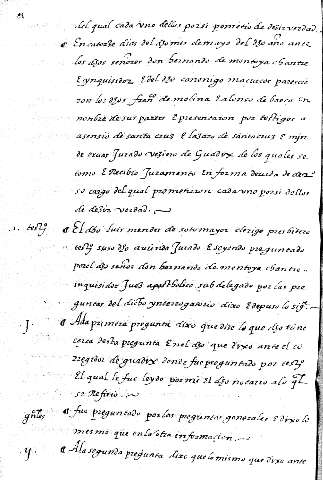 del qual cada uno dellos por si prometio de desir verdad.
En catorze dias del dho mes de mayo del dho año ante
los dhos señores don bernardo de montoya chantre
E ynquisidor E del dho canonigo parecie
ron los dhos fran.co de molina E alonso de baeza en
nonbre de sus partes E presentaron por testigos a
asensio de santa cruz E lazaro de santa cruz E
Jurado vezino de Guadix de los quales se
tomo E Recibio Juramento en forma devida de dere
so cargo del qual prometieron cada uno por si dellos
de desir verdad.
1. test.o El dho luis mendes de sotomayor clerigo presbitero
test.o suso dho aviendo Jurado E seyendo preguntado
por el dho señor don bernardo de montoya chantre
inquisidor Juez apostholico subdelegado por las pre
guntas del dicho ynterrogatorio dixo E depuso lo sig.te
J. A la primera pregunta dixo que dize lo que dho tiene
cerca desta pregunta En el dho que dixo ante el co
rregidor de guadix donde fue preguntado por test.o
El qual le fue leydo por mi El dho notario al qual
se Refirio.
gn̄les fue preguntado por las preguntas generales E dixo lo
mesmo que en la otra informacion.
ij. A la segunda pregunta dixo que lo mismo que dixo ante